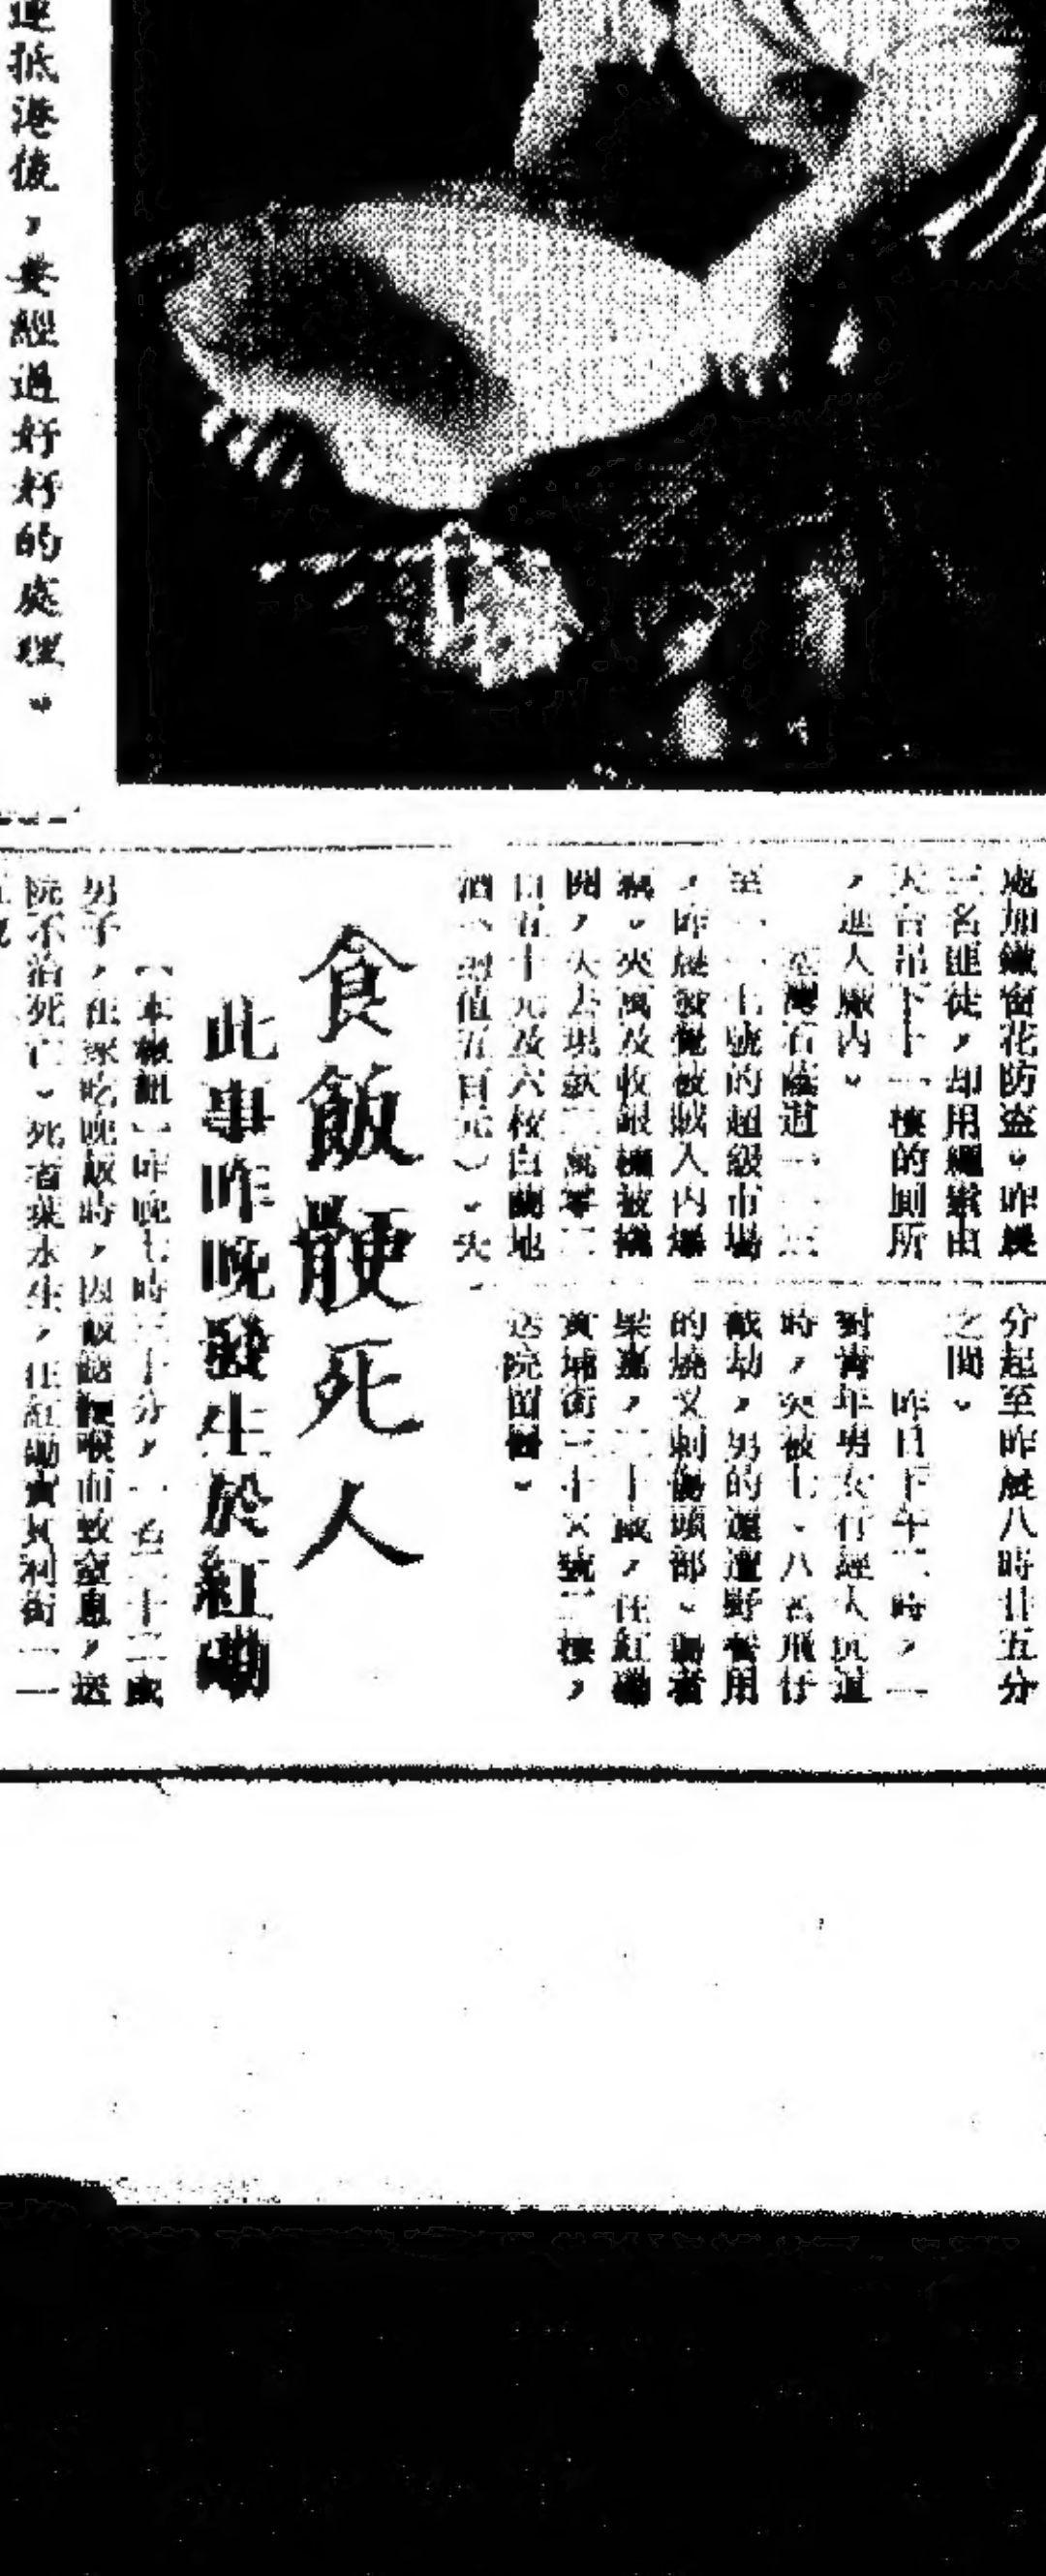 運抵港後，要經過好好的處理。
處加鐵窗花防盜。昨晨
三名匪徒，却用繩索由
天台吊下十一樓的厠所
，進入廠內。
荃灣石蔭道一
號的超級市場
，昨晨發覺被賊人內爆
竊。夾萬及收銀櫃被撬
開，失去現款二萬零二
百五十元及六枝白蘭地
酒（約值五百元）。失
分起至昨晨八時廿五分
之間。
昨日下午二時，一
對青年男女行經大坑道
時，突被七、八名飛仔
截劫，男的還遭野餐用
的燒叉刺傷頭部。傷者
二十歲，住紅磡
黃埔街三十號二樓，
送院留醫。
食飯骾死人
此事昨晚發生於紅磡
（本報訊）昨晚七時三十分，一名三十二歲
男子，在家吃晚飯時，因飯餸鯁喉而致窒息，送
院不治死亡。死者葉水生，住紅磡寶其利街一一